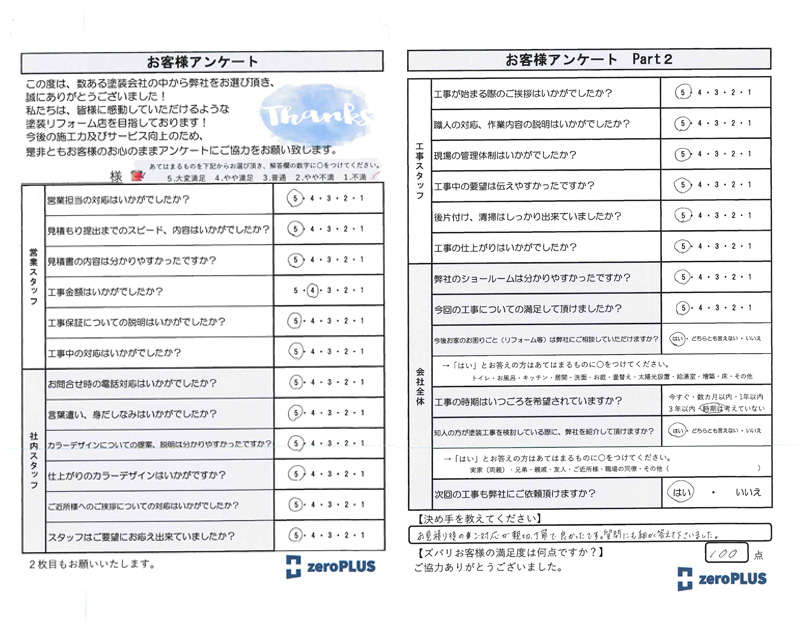 お客様アンケート
この度は、数ある塗装会社の中から弊社をお選び頂き、
誠にありがとうございました！
私たちは、皆様に感動していただけるような
塗装リフォーム店を目指しております！
今後の施工力及びサービス向上のため、
是非ともお客様のお心のままアンケートにご協力をお願い致します。
Thanks
あてはまるものを下記からお選び頂き、解答欄の数字に○をつけてください。
様
5.大変満足 4.やや満足 3.普通 2.やや不満 1.不満
営業スタッフ
営業担当の対応はいかがでしたか？ 5・4・3・2・1
見積もり提出までのスピード、内容はいかがでしたか？ 5・4・3・2・1
見積書の内容は分かりやすかったですか？ 5・4・3・2・1
工事金額はいかがでしたか？ 5・4・3・2・1
工事保証についての説明はいかがでしたか？ 5・4・3・2・1
工事中の対応はいかがでしたか？ 5・4・3・2・1
社内スタッフ
お問合せ時の電話対応はいかがでしたか？ 5・4・3・2・1
言葉遣い、身だしなみはいかがでしたか？ 5・4・3・2・1
カラーデザインについての提案、説明は分かりやすかったですか？ 5・4・3・2・1
仕上がりのカラーデザインはいかがですか？ 5・4・3・2・1
ご近所様へのご挨拶についての対応はいかがでしたか？ 5・4・3・2・1
スタッフはご要望にお応え出来ていましたか？ 5・4・3・2・1
2枚目もお願いいたします。
zeroPLUS
お客様アンケート Part2
工事スタッフ
工事が始まる際のご挨拶はいかがでしたか？ 5・4・3・2・1
職人の対応、作業内容の説明はいかがでしたか？ 5・4・3・2・1
現場の管理体制はいかがでしたか？ 5・4・3・2・1
工事中の要望は伝えやすかったですか？ 5・4・3・2・1
後片付け、清掃はしっかり出来ていましたか？ 5・4・3・2・1
工事の仕上がりはいかがでしたか？ 5・4・3・2・1
会社全体
弊社のショールームは分かりやすかったですか？ 5・4・3・2・1
今回の工事についての満足して頂けましたか？ 5・4・3・2・1
今後お家のお困りごと（リフォーム等）は弊社にご相談していただけますか？ はい・どちらとも言えない・いいえ
→「はい」とお答えの方はあてはまるものに○をつけてください。
トイレ・お風呂・キッチン・居間・洗面・お庭・畳替え・太陽光設置・給湯室・増築・床・その他
工事の時期はいつごろを希望されていますか？ 今すぐ・数カ月以内・1年以内
3年以内・時期は考えていない
知人の方が塗装工事を検討している際に、弊社を紹介して頂けますか？ はい・どちらとも言えない・いいえ
→「はい」とお答えの方はあてはまるものに○をつけてください。
実家（両親）・兄弟・親戚・友人・ご近所様・職場の同僚・その他（ ）
次回の工事も弊社にご依頼頂けますか？ はい ・ いいえ
【決め手を教えてください】
お見積り時の対応が親切、丁寧で良かったです。質問にも細かく答えて下さいました。
【ズバリお客様の満足度は何点ですか？】 100 点
ご協力ありがとうございました。
zeroPLUS